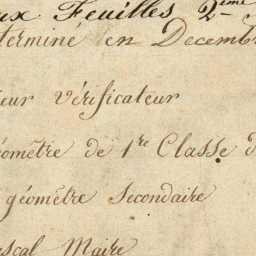 ux Feuilles 2ème
terminé en Decemb
eur Vérificateur
éomètre de 1re Classe d
géomètre Secondaire
ascal Maire